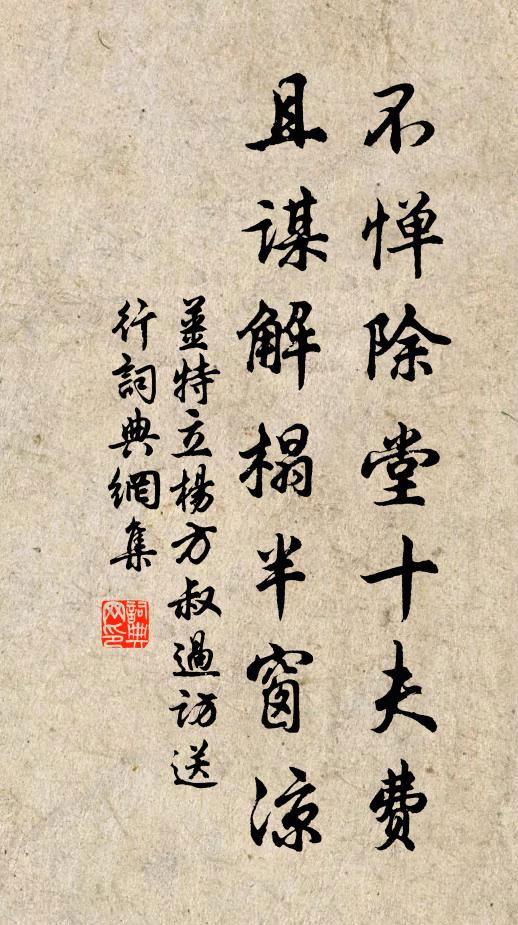 不惮除堂十夫费
且谋解榻半窗凉
姜特立杨方叔过访送
行词典网集
词典
网印